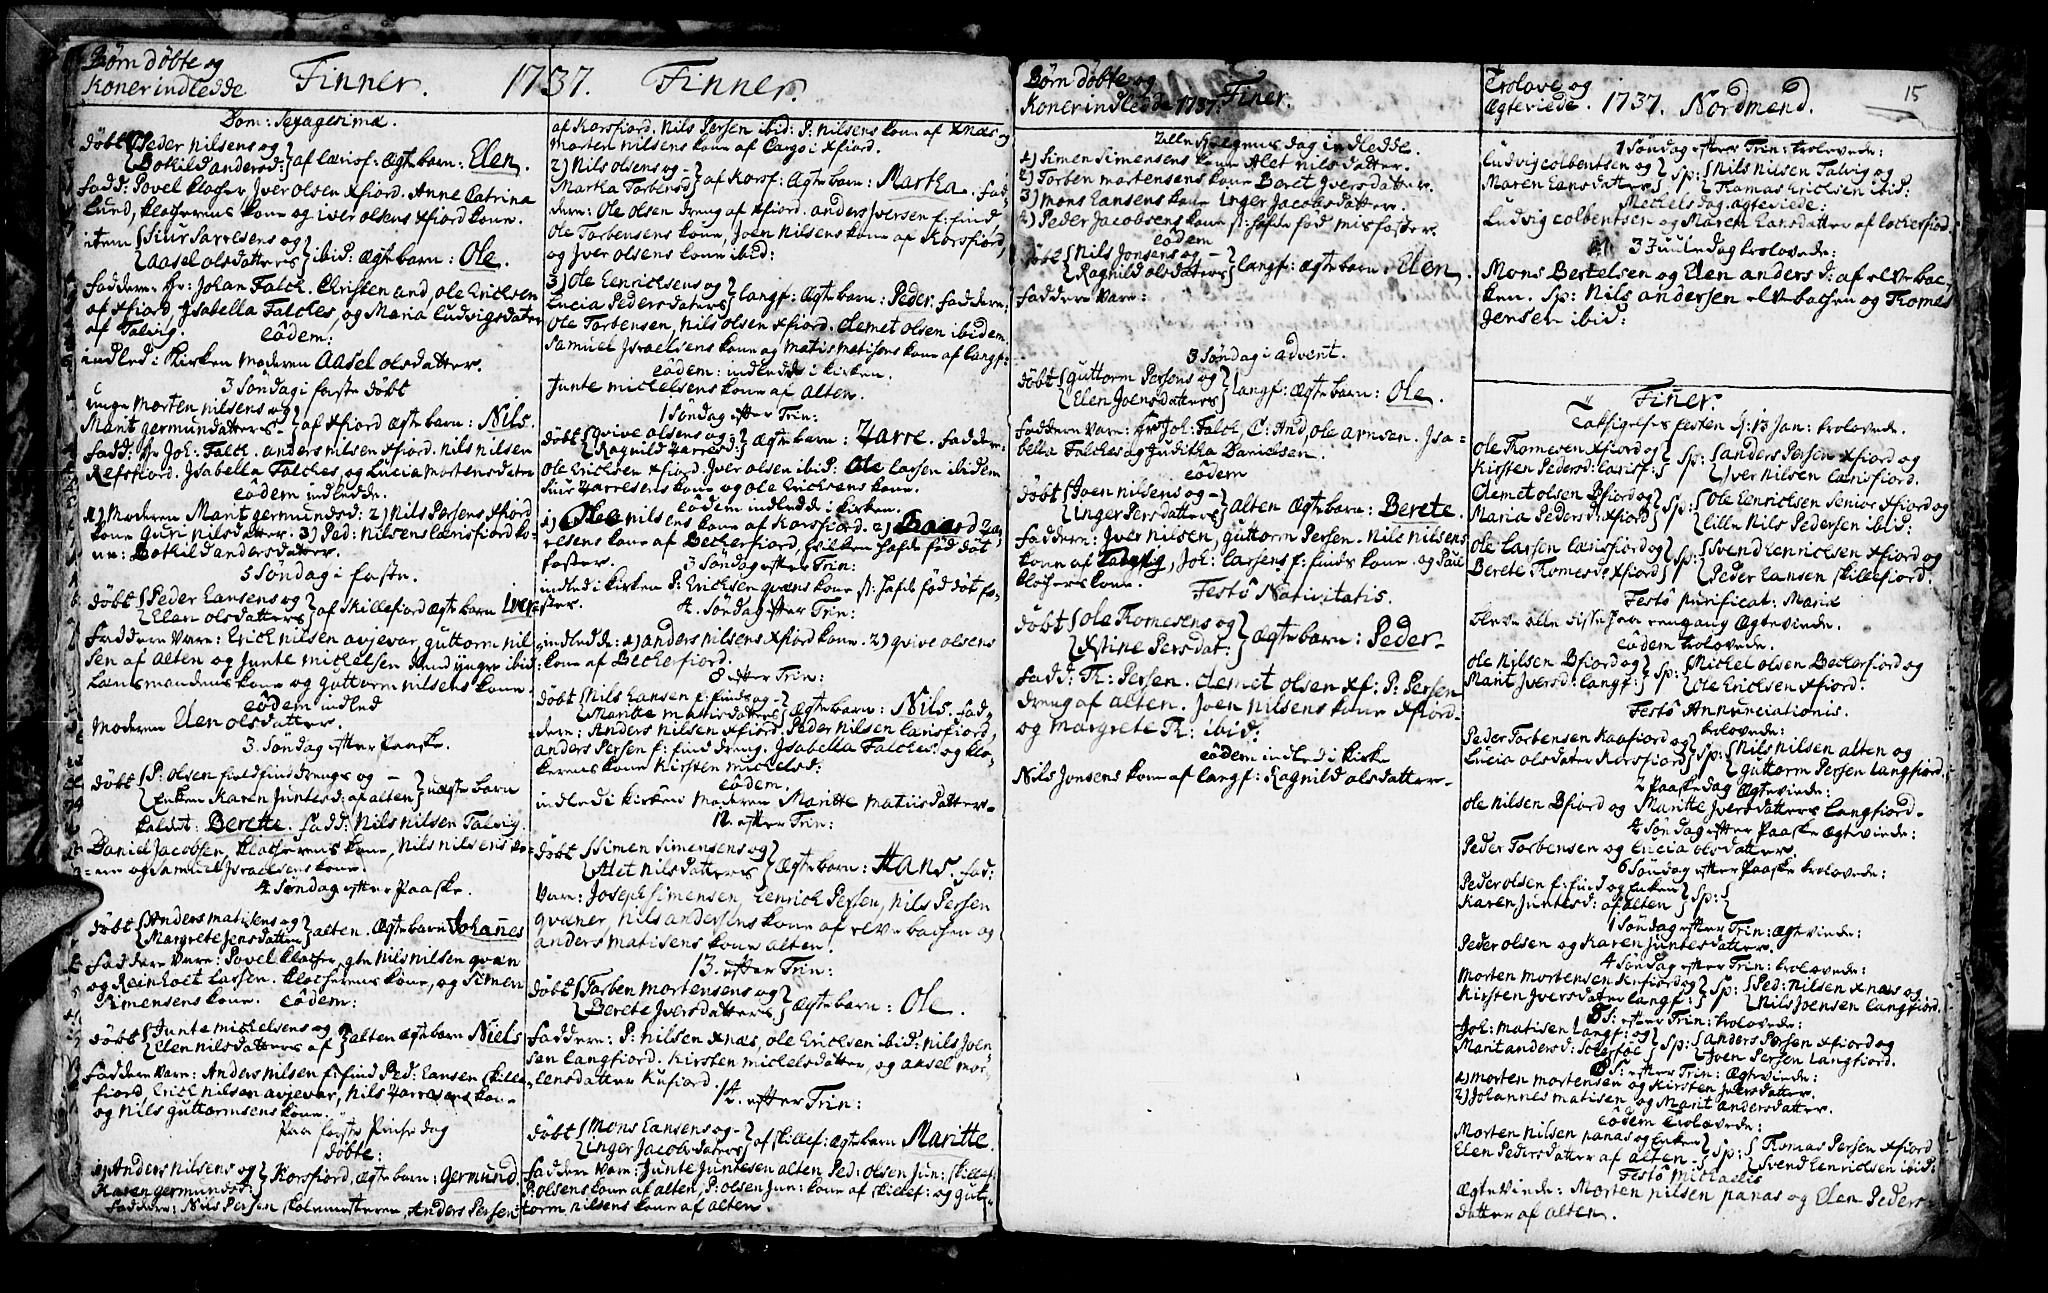 Børn døbte og
Koner indledde Finner. 1737. Finner.
Dom: Sexagesimæ.
døbt Peder Nilsens og
Bothild andersd: af Lærisf: Ægte barn: Elen.
fadd: Povel klocher, Iver olsen xfiord. Anne Catrina
Lund, klocherens kone og Iver olsens xfiord kone.
item Siur Sarresens og
Aasel olsdatters ibid: Ægte barn: Ole.
faddere: Hr: Johan Falch. Christen And, ole Erichsen
af xfiord, Isabella Falches, og Maria Ludvigsdater
af Talvig. eôdem:
indled i Kirken moderen Aasel olsdatter.
3 Søndag i faste døbt
unge Morten nilsens og
Marit germundatters af xfiord ægte barn: Nils.
fadd: Hr Joh. Falch. anders nilsen xfiord. Nils nilsen
Refsfiord. Isabella Falches, og Lucia mortensdatre
eôdem indledde.
1) Moderen Marit germundsd: 2) Nils Persens xfiord
kone Guri Nilsdatter. 3) Ped: Nilsens Lærisfiord ko-
ne: Bothild andersdatter.
5 Søndag i faste.
døbt Peder Hansens og
Elen olsdatters af Skillefiord Ægte barn Iver
faddere vare: Erich nilsen avjevar, guttorm nil-
sen af alten og Junte michelsen dend yngre ibid
Lænsmandens kone og guttorm nilsens kone.
eôdem indled
moderen Elen olsdatter.
3. Søndag efter Paaske.
døbt P: olsen fieldfind drengs og
Enken Karen Juntesd: af alten uægte barn
kaldet: Berette. fadd: Nils Nilsen Talvig.
Daniel Jacobsen, klocherens kone, Nils nilsens ko-
ne og Samuel Israelsens kone.
4 Søndag efter Paaske.
døbt Anders matisens og
Margrete Jensdatters alten. Ægte barn Johannes
faddere vare: Povel klocher, gle Nils nilsen qvæn
og Reinholt Larsen. klocherens kone, og Simen
Simensens kone. eôdem:
døbt Junte michelsens og
Elen nilsdatters af alten ægte barn Niels
faddere vare: Anders nilsen f: find Ped: Hansen skille
fiord, Erich nilsen avjevar, Nils Zarresens kone
og Nils guttormsens kone.
Paa første Pintse dag
døbte:
1) Anders nilsens og
Karen germundsd: Korsfiord, ægte barn: Germund
faddere: Nils Persen skolemesteren, Anders Persen
af Korsfiord. Nils Persen ibid: P: nilsens kone af xnæs og
Morten nilsens kone af Cargo i xfiord.
2) Nils olsens og
Martha Torbensd: af Korsf: Ægte barn: Martha. fad-
dere: Ole olsen dreng af xfiord. anders Iversen f: find
Ole Torbensens kone, Joen nilsens kone af Korsfiord,
og Iver olsens kone ibid:
3) Ole Henrichsens og
Lucia Pedersdaters langf: ægte barn: Peder. faddere:
Ole Torbensen, Nils olsen xfiord. Clemet olsen ibidem
Samuel Israelsens kone og Matis matisens kone af langf:
eôdem: indledde i kirken.
Junte michelsens kone af Alten.
1 Søndag efter Trin:
døbt qvive olsens og
Ragnild Zarresd: Ægte barn: Zarre. faddere.
Ole Erichsen xfiord. Iver olsen ibid: Ole Larsen ibidem
Siur Zarresens kone og ole Erichsens kone.
eôdem indledde i kirken.
1) Ole nilsens kone af Korsfiord. 2) Baard Za-
resens kone af Beckerfiord, hvilken hafde fød død
foster. 3 Søndag efter Trin:
indled i kirken P: Erichsen qvæns kone st: hafde fød døt fo-
ster. 4. Søndag efter Trin:
indledde: 1) anders nilsens xfiord kone. 2) qvive olsens
kone af Beckerfiord.
8 efter Trin:
døbt Nils Hansen f: finds og
Maritte matisdatters Ægte barn: Nils. fad-
dere: Anders nilsen xfiord. Peder nilsen Lærisfiord,
anders Persen f: find dreng. Isabella Falches: og klo-
kerens kone Kirsten michelsd:
eôdem.
indled i kirken moderen Maritte matisdatter.
12. efter Trin:
døbt Simen Simensens og
Alet nilsdatters Ægte barn: Hans. fad:
vare: Joseph Simensen, Henrich Persen, Nils Persen
qvæner, Nils andersens kone af elve bachen og
anders matisens kone alten.
13. efter Trin:
døbt Torben mortensens og
Berete Iversdatters Ægte barn: Ole.
faddere: P: nilsen xnæs, ole Erichsen ibid: Nils Joen-
sen Langfiord. Kirsten michelsdatter, og aasel mor-
tensdatter Kufiord.
14. efter Trin:
døbt Mons Hansens og
Inger Jacobsdaters af skillef: ægte barn Maritte.
faddere vare: Junte Juntesen alten Ped: olsen Jun: skillef:
P: olsens kone af alten, P: olsen Jun: kone af skillef: og gut-
torm nilsens kone af alten.
Børn døbte og
Koner indledde 1737. Finer.
alle Helgens dag indledde.
1) Simen Simensens kone Alet nils datter.
2) Torben mortensens kone Beret Iversdatter.
3) Mons Hansens kone Inger Jacobsdatter.
4) Peder Jacobsens kone st: hafde fød misfoster.
eôdem
døbt Nils Jonsens og
Ragnild olsdatters langf: ægte barn: Elen.
faddere vare:
3 Søndag i advent.
døbt guttorm Persens og
Elen Joensdatters langf: ægte barn: Ole.
faddere vare: Hr Joh. Falch. C: And, ole arnsen. Isa-
bella Falches og Juditha Danielsen.
eôdem
døbt Joen nilsens og
Inger Persdatters alten Ægte barn: Berete.
faddere: Iver nilsen, guttorm Persen. Nils nilsens
kone af Talvig, Joh: Larsens f: finds kone. og Paul
klochers kone.
Festô Nativitatis.
døbt Ole Thomesens og
Kirstine Persdat: Ægte barn: Peder
fadd: Th: Persen. Clemet olsen xf: P: Persen
dreng af alten. Joen nilsens kone xfiord
og margrete Th: ibid:
eôdem indled i kirke
Nils Jonsens kone af langf: Ragnild olsdatter
Trolove og
Ægteviede. 1737. Nordmend. 15
1 Søndag efter Trin: trolovede:
Ludvig colbentsen og
Maren Hansdatter Sp: Nils Nilsen Talvig og
Thomas Erichsen ibid:
Michels dag. ægteviede:
Ludvig colbentsen og Maren Hansdatter af lockerfiord.
3 Juule dag trolovede:
Mons Bertelsen og Elen anders d: af elve bac-
ken. Sp: Nils andersen elve bachen og Thomes
Jensen ibid:
Finer.
Tacksigelses festen d: 13 Jan: trolovede.
Ole Thomesen xfiord og
Kirsten Pedersd: Lærisf: Sp: anders Persen xfiord og
Iver Nilsen Lærisfiord.
Clemet olsen Bfiord og
Maria Pedersd: xfiord Sp: Ole Henrichsen Senior xfiord og
Lille Nils Pedersen ibid:
Ole Larsen Lærisfiord og
Berete Thomesd: xfiord Sp: Svend Henrichsen xfiord og
Peder Hansen skillefiord:
Festô Purificat: Mariæ
bleve alle disse paa eengang Ægteviede.
eôdem trolovede.
Ole Nilsen Bfiord og
Marit Iversd: langf: Sp: Michel olsen Beckerfiord og
Ole Erichsen xfiord:
Festô Annunciationis.
trolovede:
Peder Torbensen Kaafiord og
Lucia olsdater Korsfiord Sp: Nils Nilsen alten og
guttorm Persen Langfiord.
2 Paaske dag Ægteviede:
Ole Nilsen Bfiord og Maritte Iversdatter Langfiord.
4 Søndag efter Paaske Ægteviede:
Peder Torbensen og Lucia olsdatter
6 Søndag efter Paaske trolovede:
Peder olsen f: find og Enken
Karen Juntesd: af alten Sp:
1 Søndag efter Trin: Ægteviede:
Peder olsen og Karen Juntesdatter.
4 Søndag efter Trin: trolovede:
Morten Mortensen Kufiord og
Kirsten Iversdatter langf: Sp: Ped: Nilsen xnæs og
Nils Joensen Langfiord.
8 S: efter Trin: trolovede:
Joh: matisen Langf: og
Marit andersd: Sp: anders Persen xfiord og
Joen Persen Langfiord.
S: efter Trin: Ægteviede:
1) Morten Mortensen og Kirsten Iversdatter.
2) Johannes matisen og Marit andersdatter.
eôdem trolovede:
Morten Nilsen panas og Enken
Elen Pedersdatter af alten. Sp: Thomas Persen xfiord
Svend Henrichsen ibid:
Festô Michaelis
Ægteviede: Morten nilsen panas og Elen Peders-
datter af alten.